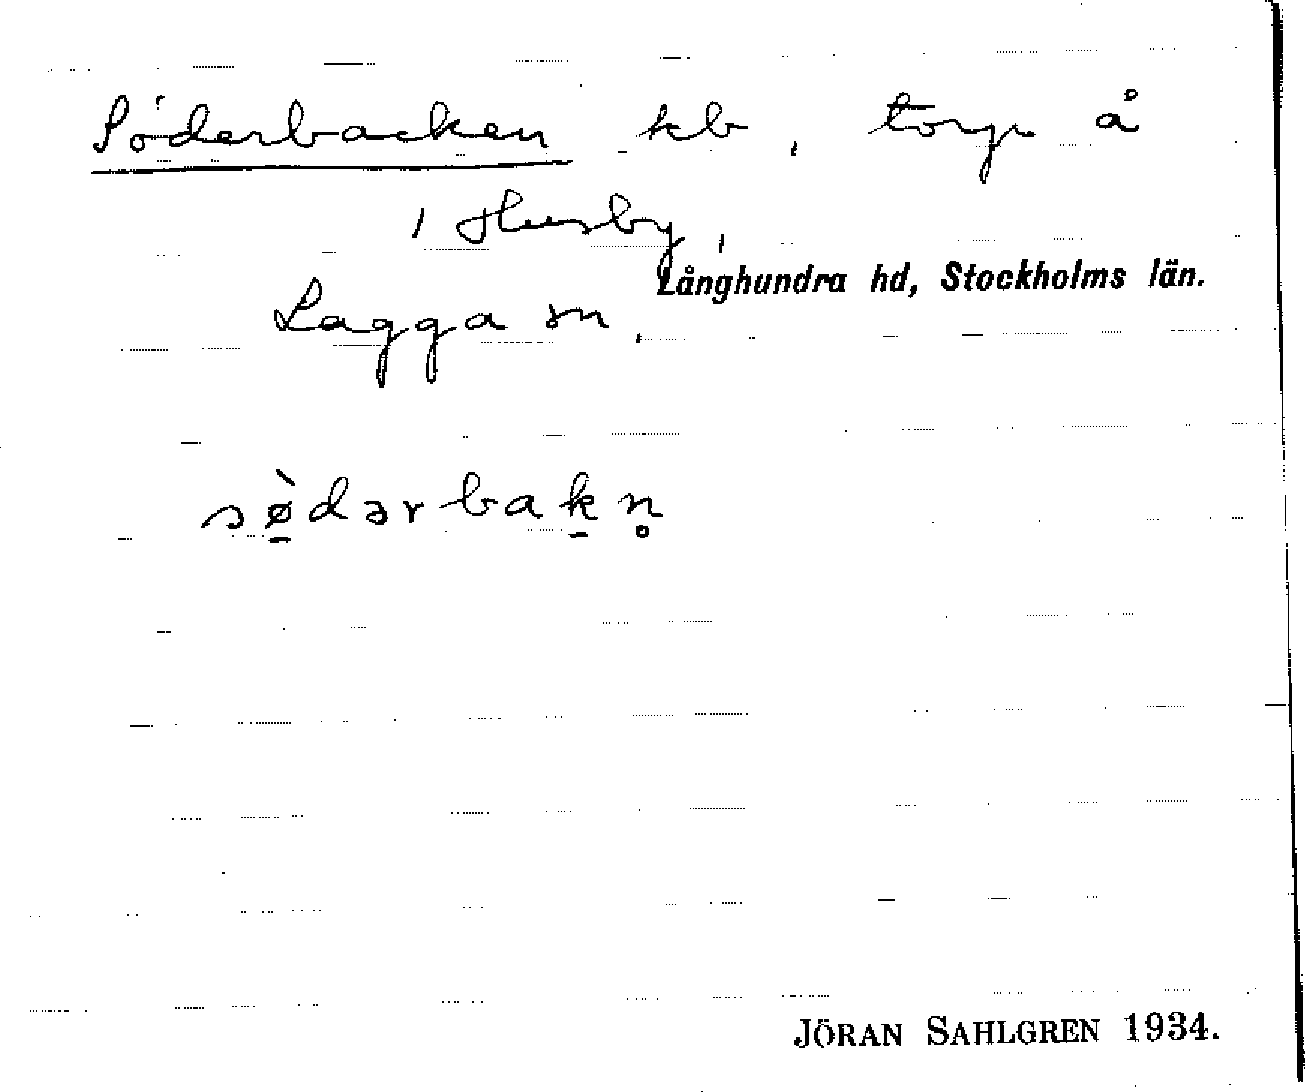 Söderbacken kb, torp å
, Husby,
Långhundra hd, Stockholms län.
Lagga sn.
sø̱̀dərbaḵn̥
JÖRAN SAHLGREN 1934.